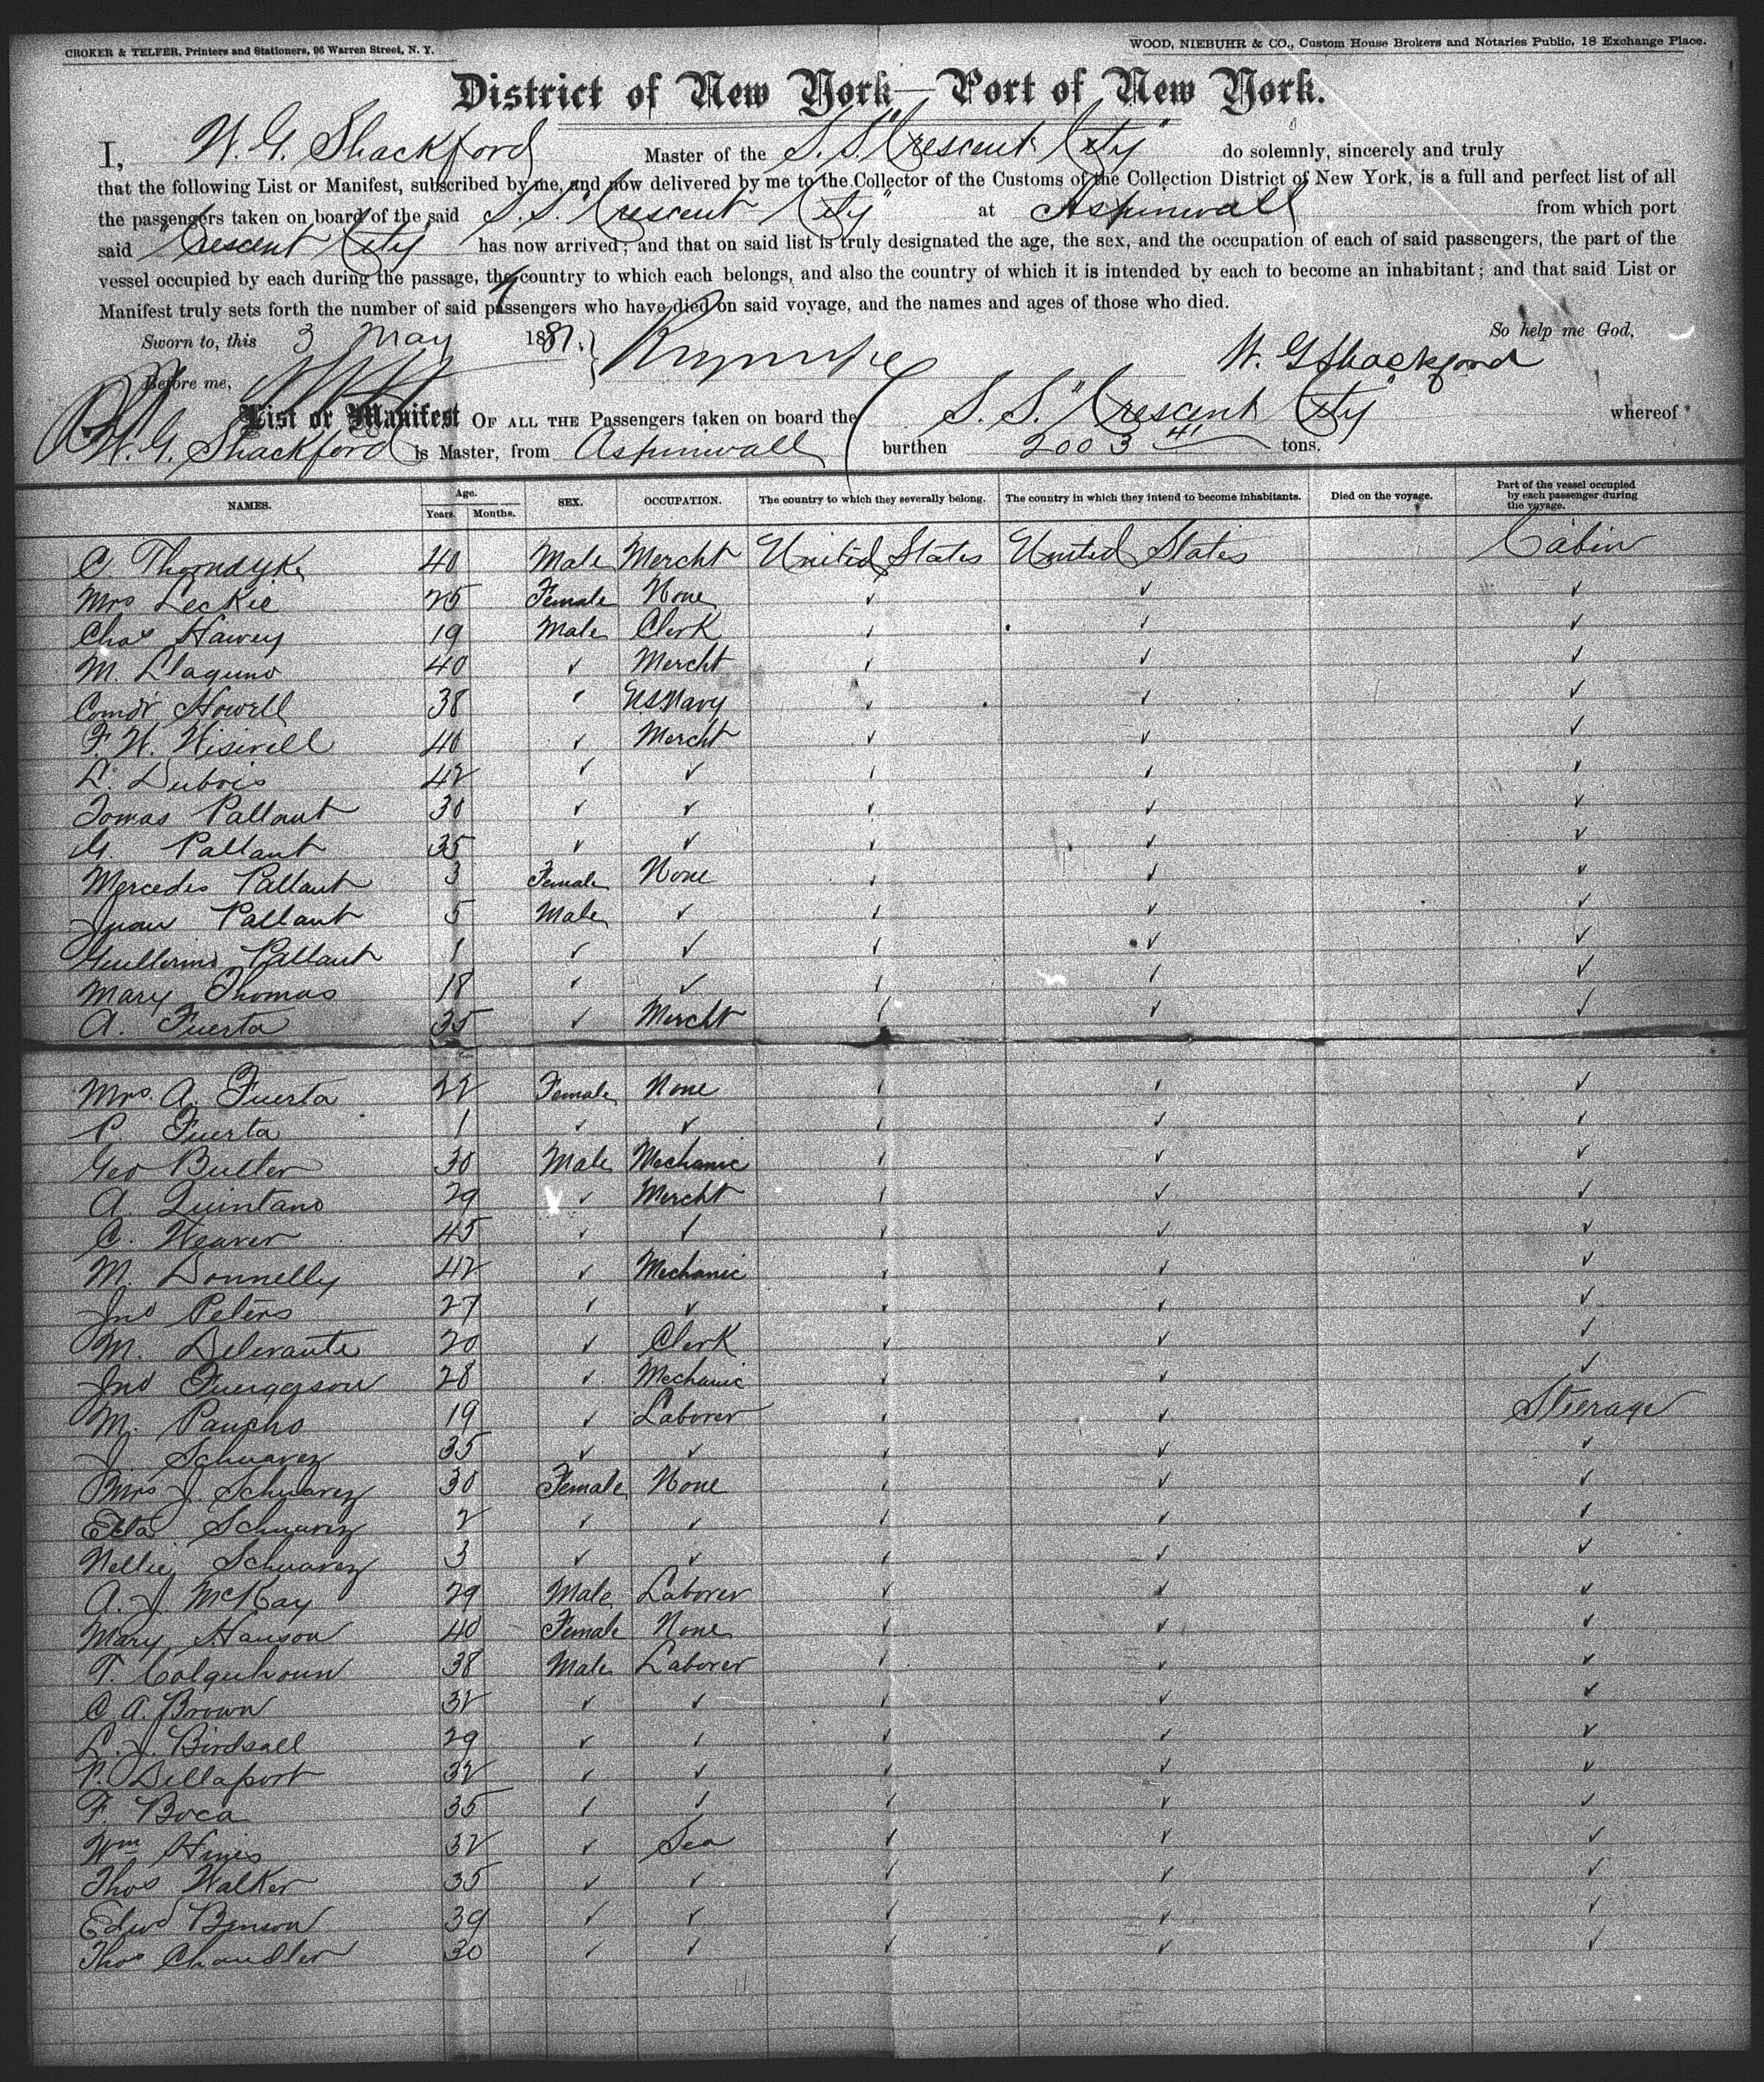 CROKER & TELFER, Printers and Stationers, 96 Warren Street, N. Y.
WOOD, NIEBUHR & CO., Custom House Brokers and Notaries Public, 18 Exchange Place.
District of New York—Port of New York.
I, W. G. Shackford Master of the S. S. "Crescent City" do solemnly, sincerely and truly
that the following List or Manifest, subscribed by me, and now delivered by me to the Collector of the Customs of the Collection District of New York, is a full and perfect list of all
the passengers taken on board of the said S. S. "Crescent City" at Aspinwall from which port
said "Crescent City" has now arrived; and that on said list is truly designated the age, the sex, and the occupation of each of said passengers, the part of the
vessel occupied by each during the passage, the country to which each belongs, and also the country of which it is intended by each to become an inhabitant; and that said List or
Manifest truly sets forth the number of said passengers who have died on said voyage, and the names and ages of those who died.
Sworn to, this 3 May 1881. So help me God,
Before me, W. G Shackford
List or Manifest OF ALL THE Passengers taken on board the S. S. "Crescent City" whereof
W. G. Shackford is Master, from Aspinwall burthen 2003 41 tons.
NAMES. Age. Years. Months. SEX. OCCUPATION. The country to which they severally belong. The country in which they intend to become inhabitants. Died on the voyage. Part of the vessel occupied by each passenger during the voyage.
C. Thorndyke 40 Male Mercht United States United States Cabin
Mrs Leckie 25 Female None ✓ ✓ ✓
Chas Hawey 19 Male Clerk ✓ ✓ ✓
M. Llaguno 40 ✓ Mercht ✓ ✓ ✓
Comdr Howell 38 ✓ US Navy ✓ ✓ ✓
F. W. Wiswell 40 ✓ Mercht ✓ ✓ ✓
L. Dubois 42 ✓ ✓ ✓ ✓ ✓
Tomas Pallaut 30 ✓ ✓ ✓ ✓ ✓
G. Pallaut 35 ✓ ✓ ✓ ✓ ✓
Mercedes Pallaut 3 Female None ✓ ✓ ✓
Juan Pallaut 5 Male ✓ ✓ ✓ ✓
Guillermo Pallaut 1 ✓ ✓ ✓ ✓ ✓
Mary Thomas 18 ✓ ✓ ✓ ✓ ✓
A. Fuerta 35 ✓ Mercht ✓ ✓ ✓
Mrs. A. Fuerta 22 Female None ✓ ✓ ✓
P. Fuerta 1 ✓ ✓ ✓ ✓ ✓
Geo Butler 30 Male Mechanic ✓ ✓ ✓
A. Quintano 29 ✓ Mercht ✓ ✓ ✓
C. Weaver 45 ✓ ✓ ✓ ✓ ✓
M. Donnelly 42 ✓ Mechanic ✓ ✓ ✓
Jno Peters 27 ✓ ✓ ✓ ✓ ✓
M. Delevante 20 ✓ Clerk ✓ ✓ ✓
Jno Fuergerson 28 ✓ Mechanic ✓ ✓ ✓
M. Pancho 19 ✓ Laborer ✓ ✓ Steerage
J. Schwarez 35 ✓ ✓ ✓ ✓ ✓
Mrs J. Schwarez 30 Female None ✓ ✓ ✓
Etta Schwarez 2 ✓ ✓ ✓ ✓ ✓
Nellie Schwarez 3 ✓ ✓ ✓ ✓ ✓
A. J. McKay 29 Male Laborer ✓ ✓ ✓
Mary Hanson 40 Female None ✓ ✓ ✓
T. Colquhoun 38 Male Laborer ✓ ✓ ✓
C. A. Brown 32 ✓ ✓ ✓ ✓ ✓
L. J. Birdsall 29 ✓ ✓ ✓ ✓ ✓
P. Dellaport 32 ✓ ✓ ✓ ✓ ✓
F. Boca 35 ✓ ✓ ✓ ✓ ✓
Wm Hines 32 ✓ Sea ✓ ✓ ✓
Thos Walker 35 ✓ ✓ ✓ ✓ ✓
Edwd Benson 39 ✓ ✓ ✓ ✓ ✓
Thos Chandler 30 ✓ ✓ ✓ ✓ ✓